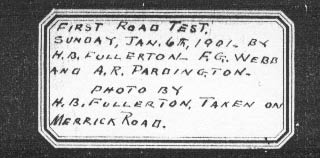 FIRST ROAD TEST.
SUNDAY, JAN. 6TH, 1901. BY
H.B. FULLERTON. F.G. WEBB
AND A.R. PARDINGTON.
PHOTO BY
H.B. FULLERTON, TAKEN ON
MERRICK ROAD.